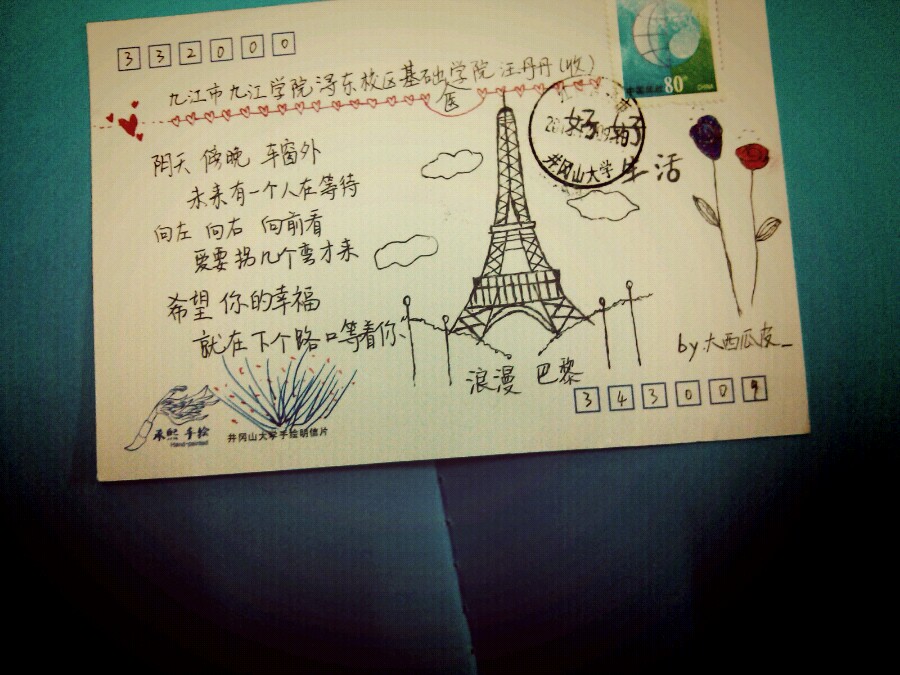 332000
九江市九江学院浔东校区基础医学院 汪丹丹(收)
中国邮政 80分
CHINA
好好
生活
井冈山大学
阴天 傍晚 车窗外
未来有一个人在等待
向左 向右 向前看
爱要拐几个弯才来
希望 你的幸福
就在下个路口等着你、
浪漫 巴黎
by:大西瓜皮_
343009
手绘
Hand-painted
井冈山大学手绘明信片